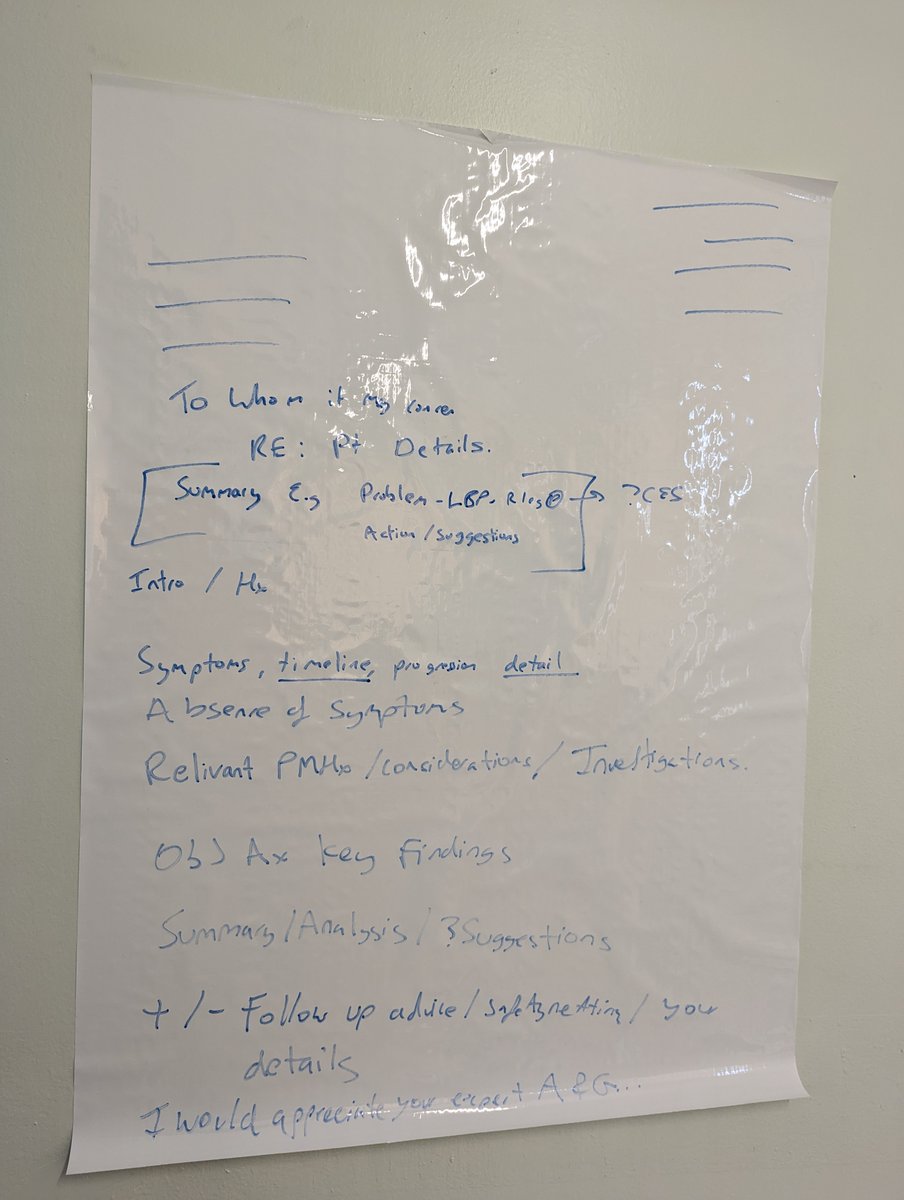 To Whom it My conren
RE: Pt Details.
Summary E.g Problem - LBP - R leg → ?CES
Action / Suggestions
Intro / Hx
Symptoms, timeline, progression detail
Absenre of Symptoms
Relivant PMHx / considerations / Investigations.
Obj Ax Key Findings
Summary / Analysis / ?Suggestions
+ / - Follow up advice / Safetynetting / your
details
I would appreciate your expert A & G...